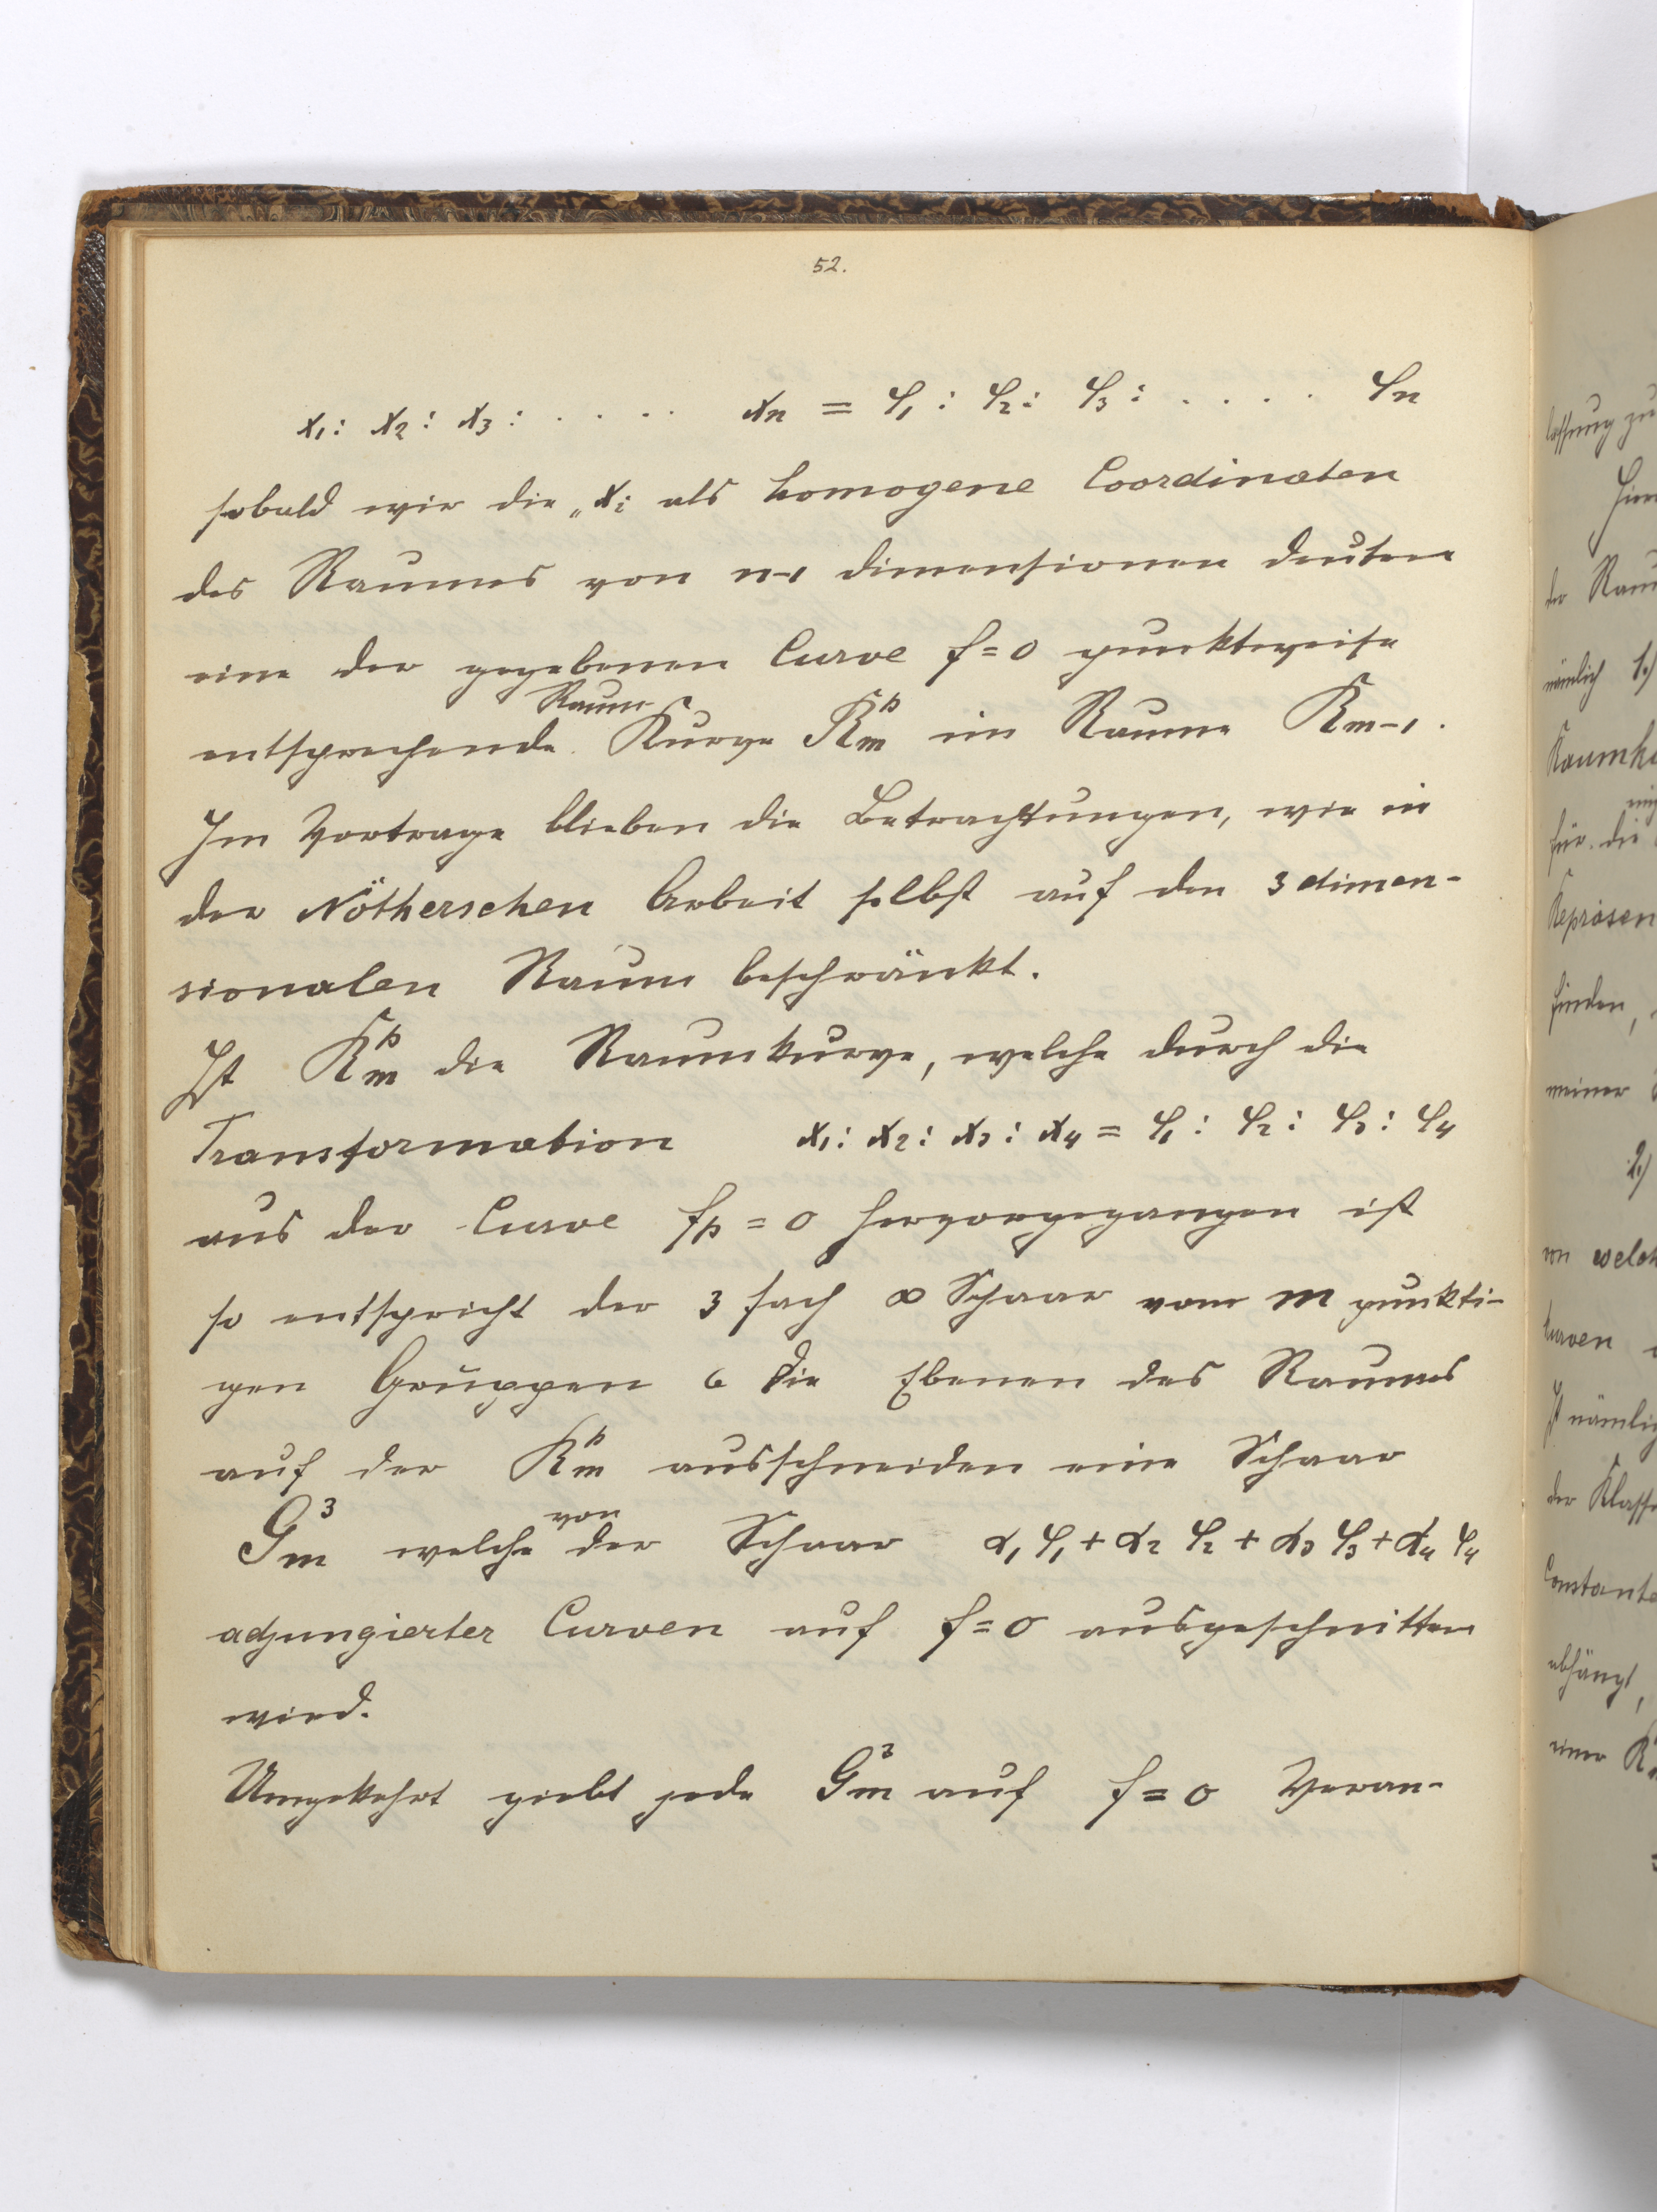 52.
x₁ : x₂ : x₃ : . . . . xn = φ₁ : φ₂ : φ₃ : . . . . φn
sobald wir die „xi als homogene Coordinaten
des Raumes von n-1 dimensionen deuten
eine der gegebenen Curve f=0 punktweise
Raum
entsprechende Kurve Kₘᵖ im Raume Rm-1.
Im Vortrage blieben die Betrachtungen, wie in
der Nötherschen Arbeit selbst auf den 3 dimen-
sionalen Raum beschränkt.
Ist Kₘᵖ die Raumkurve, welche durch die
Transformation x₁ : x₂ : x₃ : x₄ = φ₁ : φ₂ : φ₃ : φ₄
aus der Curve fp = 0 hervorgegangen ist
so entspricht der 3 fach ∞ Schaar vom m punkti-
gen Gruppen die Ebenen des Raumes
auf der Kₘᵖ ausschneiden eine Schaar
von
Gₘ³ welche der Schaar α₁φ₁ + α₂φ₂ + α₃φ₃ + α₄φ₄
adjungierter Curven auf f=0 ausgeschnitten
wird.
Umgekehrt giebt jede Gₘ³ auf f=0 Veran-
lassung zu
der
nämlich 1.)
für die
finden,
meiner
2.)
von
Ist
der
abhängt,
einer